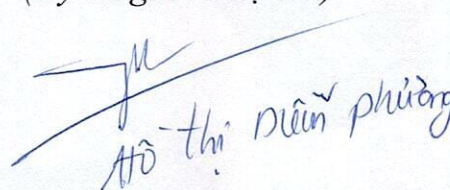 Hồ Thị Diễm Phường